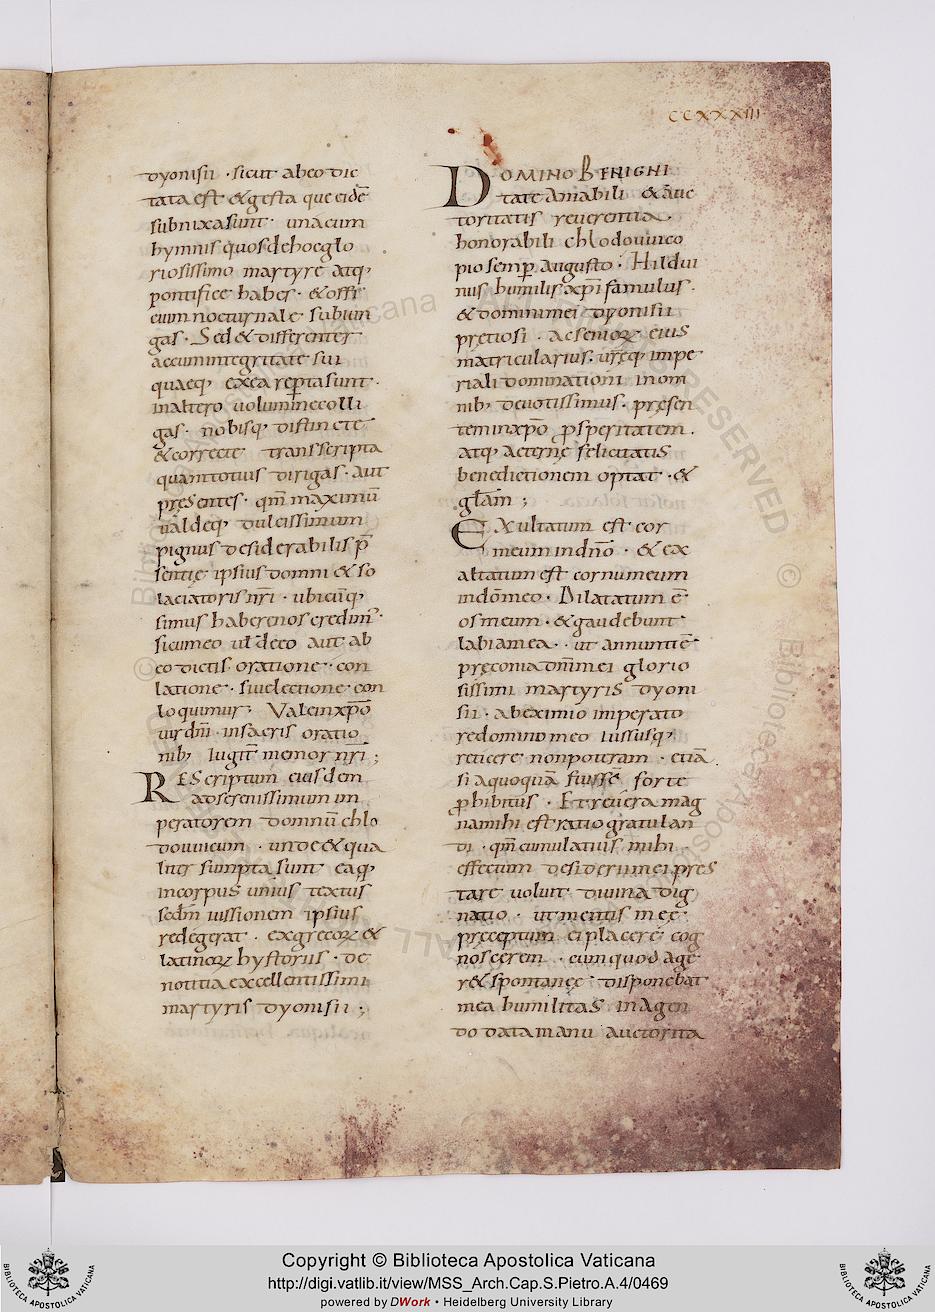 CCXXXIII
dyonisii · sicut ab eo dic
tata est & gesta que eidē
subnixa sunt · una cum
hymnis quos de hoc glo
riosissimo martyre atq;
pontifice habes · & offi
cium nocturnale subiun
gas · Sed & differenter
ac cum integritate sui
quaeq; ex ea reperta sunt ·
in altero volumine colli
gas · nobisq; distincte
& correcte transscripta
quantotius dirigas · aut
presentes · qm̄ maximū
valdeq; dulcissimum
pignus desiderabilis p̄
sentię ipsius domni & so
laciatoris nr̄i · ubicūq;
simus habere nos credim' ·
si cum eo ul̄ de eo aut ab
eo dictis oratione · con
latione · siue lectione con
loquimur; Vale in xp̄o
uir dn̄i · in sacris oratio
nib; iugit̄ memor nr̄i ;
REScriptum eiusdem
ad serenissimum im
peratorem domnū chlo
douuicum · unde & qua
lit̄ sumpta sunt eaq;
in corpus unius textus
scdm̄ iussionem ipsius
redegerat · ex grecorꝝ &
latinorꝝ hystoriis · de
notitia excellentissimi
martyris dyonisii ;
DOMINO BENIGNI
tate amabili & auc
toritatis reuerentia ·
honorabili chlodouuico
pio semp̄ augusto · Hildui
nus humilis xp̄i famulus ·
& domini mei dyonisii
pretiosi · ac seniorꝝ eius
matricularius · ur̄ęq; impe
riali dominationi in om
nib; deuotissimus · presen
tem in xp̄o ꝓsperitatem ·
atq; aeternę felicitatis
benedictionem optat · &
glām ;
EXultatum est cor
meum in dn̄o · & ex
altatum est cornu meum
in dō meo · Dilatatum ē
os meum · & gaudebunt
labia mea · ut annuntiē
pręconia dn̄i mei glorio
sissimi martyris dyoni
sii · ab eximio imperato
re domino meo iussusq;
reticere non poteram · etiā
si a quoquā fuissē forte
ꝓhibitus · Et reuera mag
na mihi est ratio gratulan
di · qm̄ cumulatius mihi
effectum desiderii mei pres
tare uoluit diuina dig
natio · ut mentis meę
preceptum ei placere cog
noscerem · cum quod age
r& spontanee disponebat
mea humilitas in agen
do data manu auctorita
Copyright © Biblioteca Apostolica Vaticana
http://digi.vatlib.it/view/MSS_Arch.Cap.S.Pietro.A.4/0469
powered by DWork • Heidelberg University Library